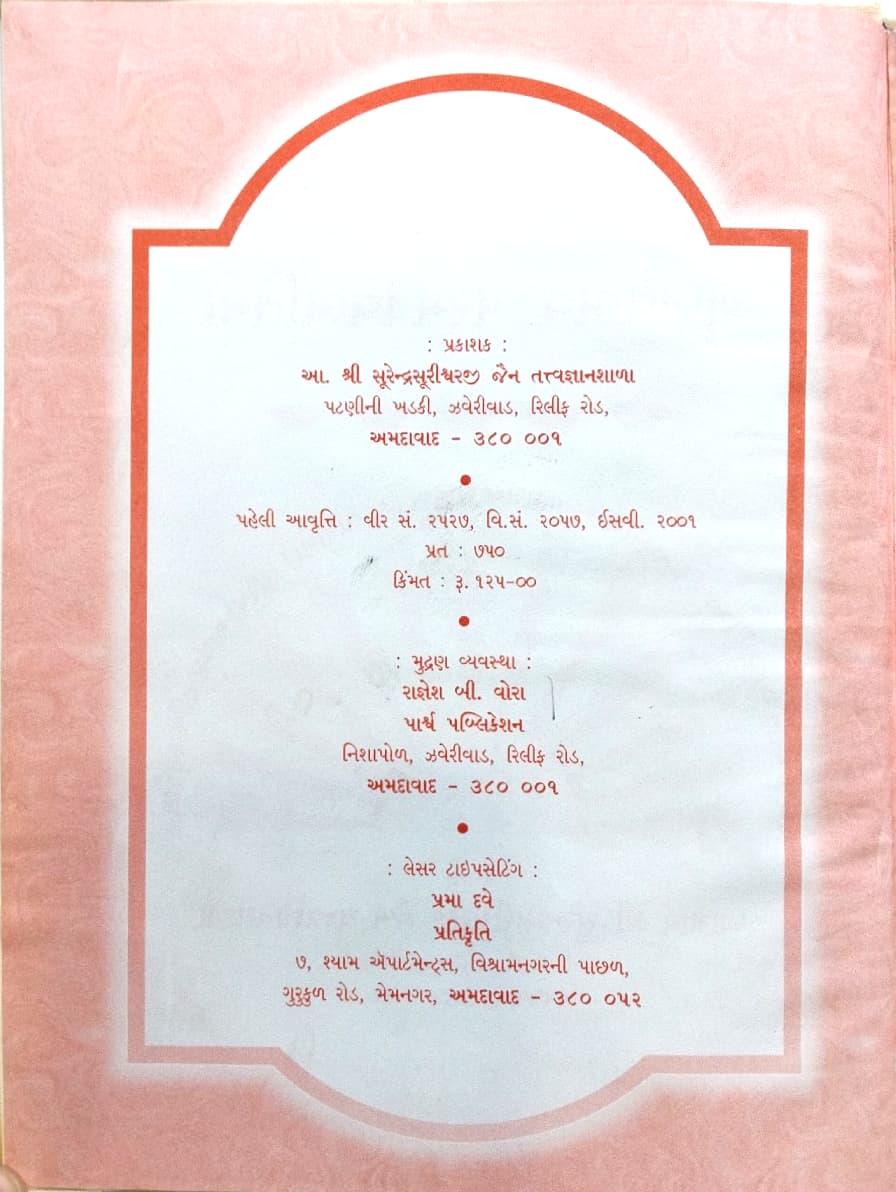 : પ્રકાશક :
આ. શ્રી સૂરેન્દ્રસૂરીશ્વરજી જૈન તત્ત્વજ્ઞાનશાળા
પટણીની ખડકી, ઝવેરીવાડ, રિલીફ રોડ,
અમદાવાદ - ૩૮૦ ૦૦૧
પહેલી આવૃત્તિ : વીર સં. ૨૫૨૭, વિ.સં. ૨૦૫૭, ઈસવી. ૨૦૦૧
પ્રત : ૭૫૦
કિંમત : રૂ. ૧૨૫-૦૦
: મુદ્રણ વ્યવસ્થા :
રાજ્ઞેશ બી. વોરા
પાર્શ્વ પબ્લિકેશન
નિશાપોળ, ઝવેરીવાડ, રિલીફ રોડ,
અમદાવાદ - ૩૮૦ ૦૦૧
: લેસર ટાઇપસેટિંગ :
પ્રમા દવે
પ્રતિકૃતિ
૭, શ્યામ ઍપાર્ટમેન્ટ્સ, વિશ્રામનગરની પાછળ,
ગુરુકુળ રોડ, મેમનગર, અમદાવાદ - ૩૮૦ ૦૫૨